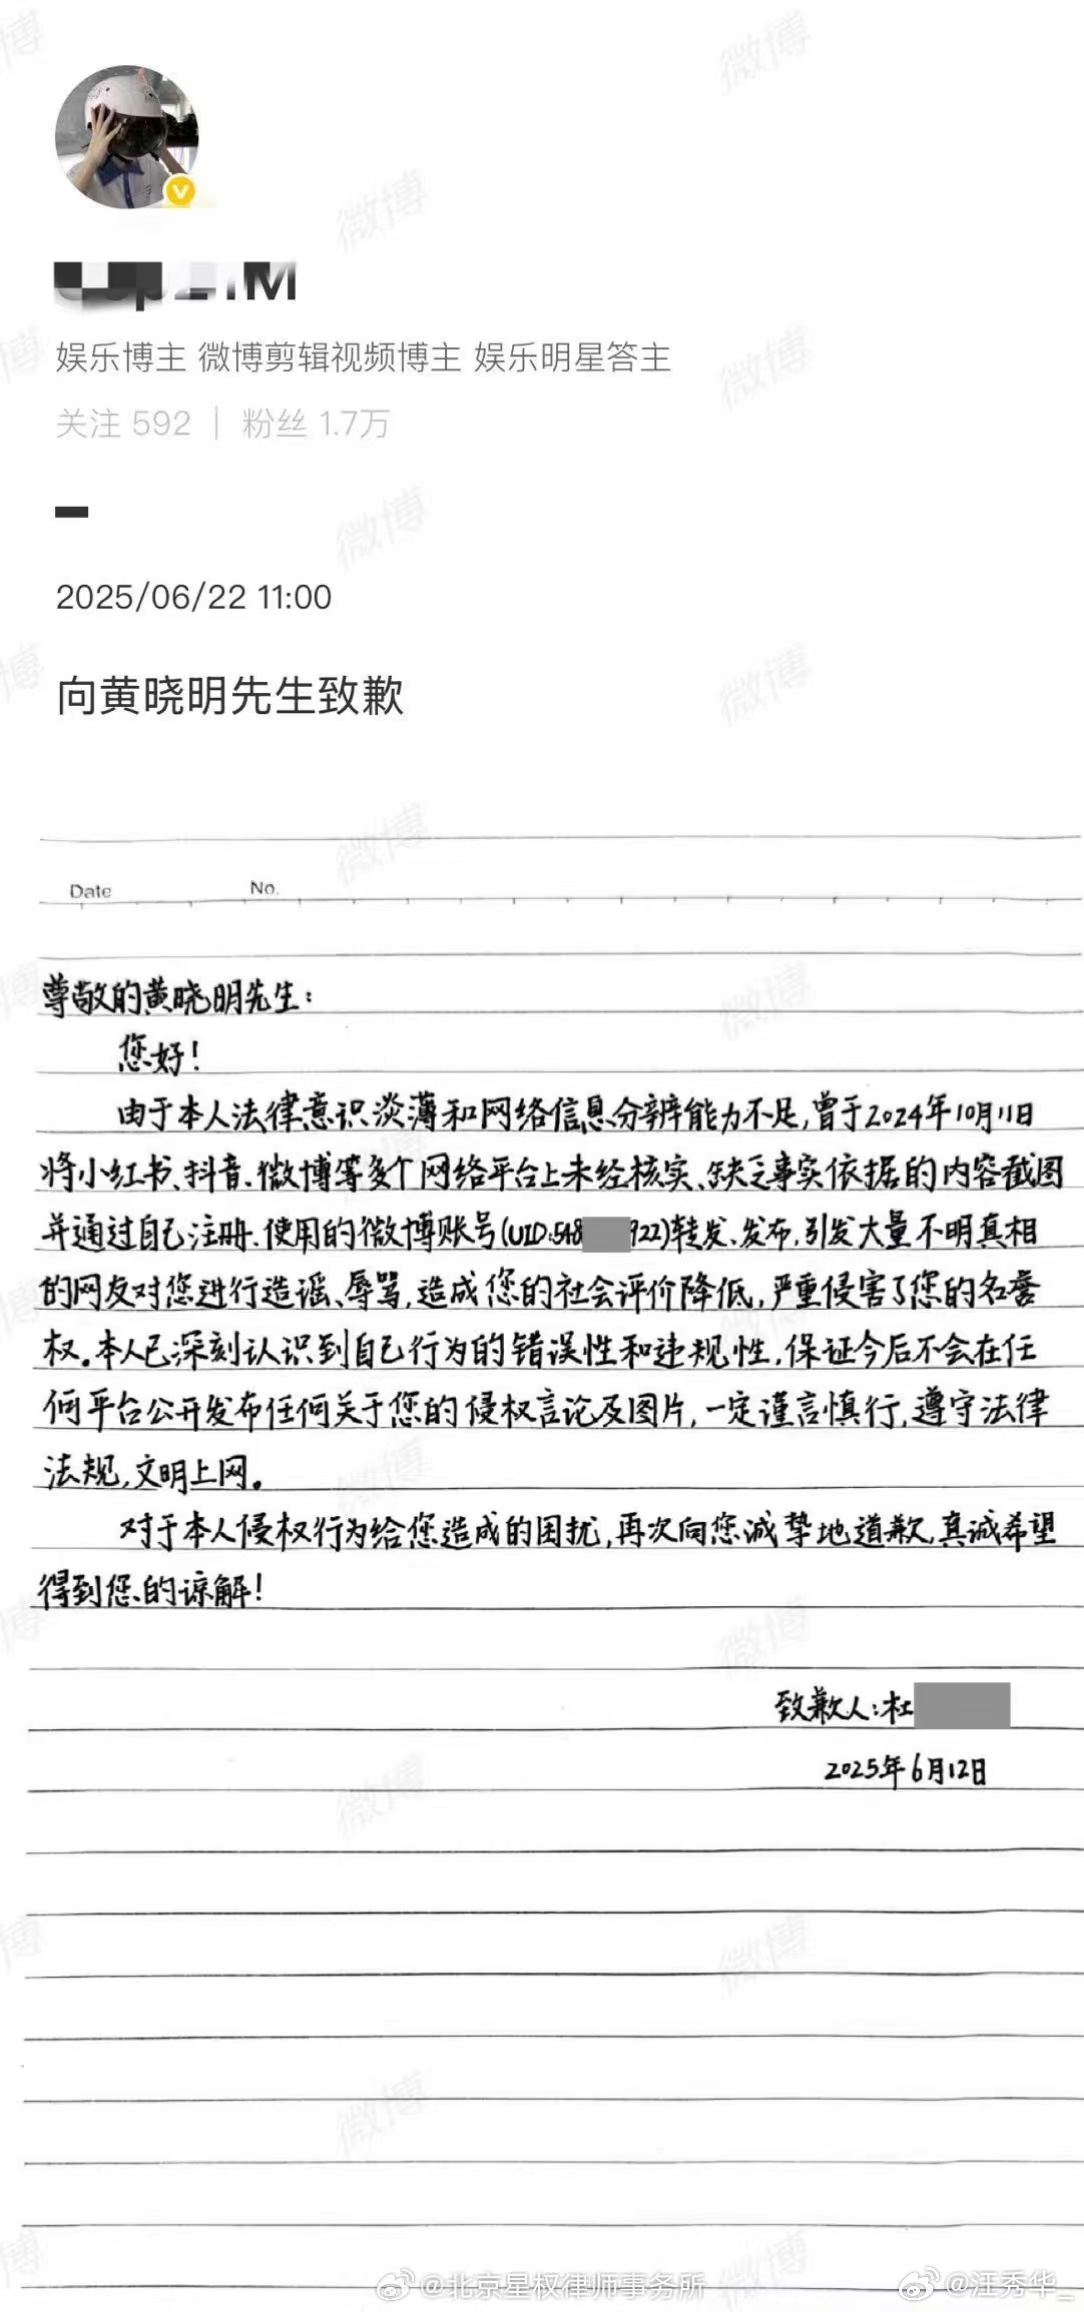 娱乐博主 微博剪辑视频博主 娱乐明星答主
关注 592 | 粉丝 1.7万
2025/06/22 11:00
向黄晓明先生致歉
Date No.
尊敬的黄晓明先生：
您好！
由于本人法律意识淡薄和网络信息分辨能力不足，曾于2024年10月11日
将小红书、抖音、微博等多个网络平台上未经核实、缺乏事实依据的内容截图
并通过自己注册、使用的微博账号(UID:548 922)转发、发布，引发大量不明真相
的网友对您进行造谣、辱骂，造成您的社会评价降低，严重侵害了您的名誉
权。本人已深刻认识到自己行为的错误性和违规性，保证今后不会在任
何平台公开发布任何关于您的侵权言论及图片，一定谨言慎行，遵守法律
法规，文明上网。
对于本人侵权行为给您造成的困扰，再次向您诚挚地道歉，真诚希望
得到您的谅解！
致歉人：杜
2025年6月12日
@北京星权律师事务所
@汪秀华_